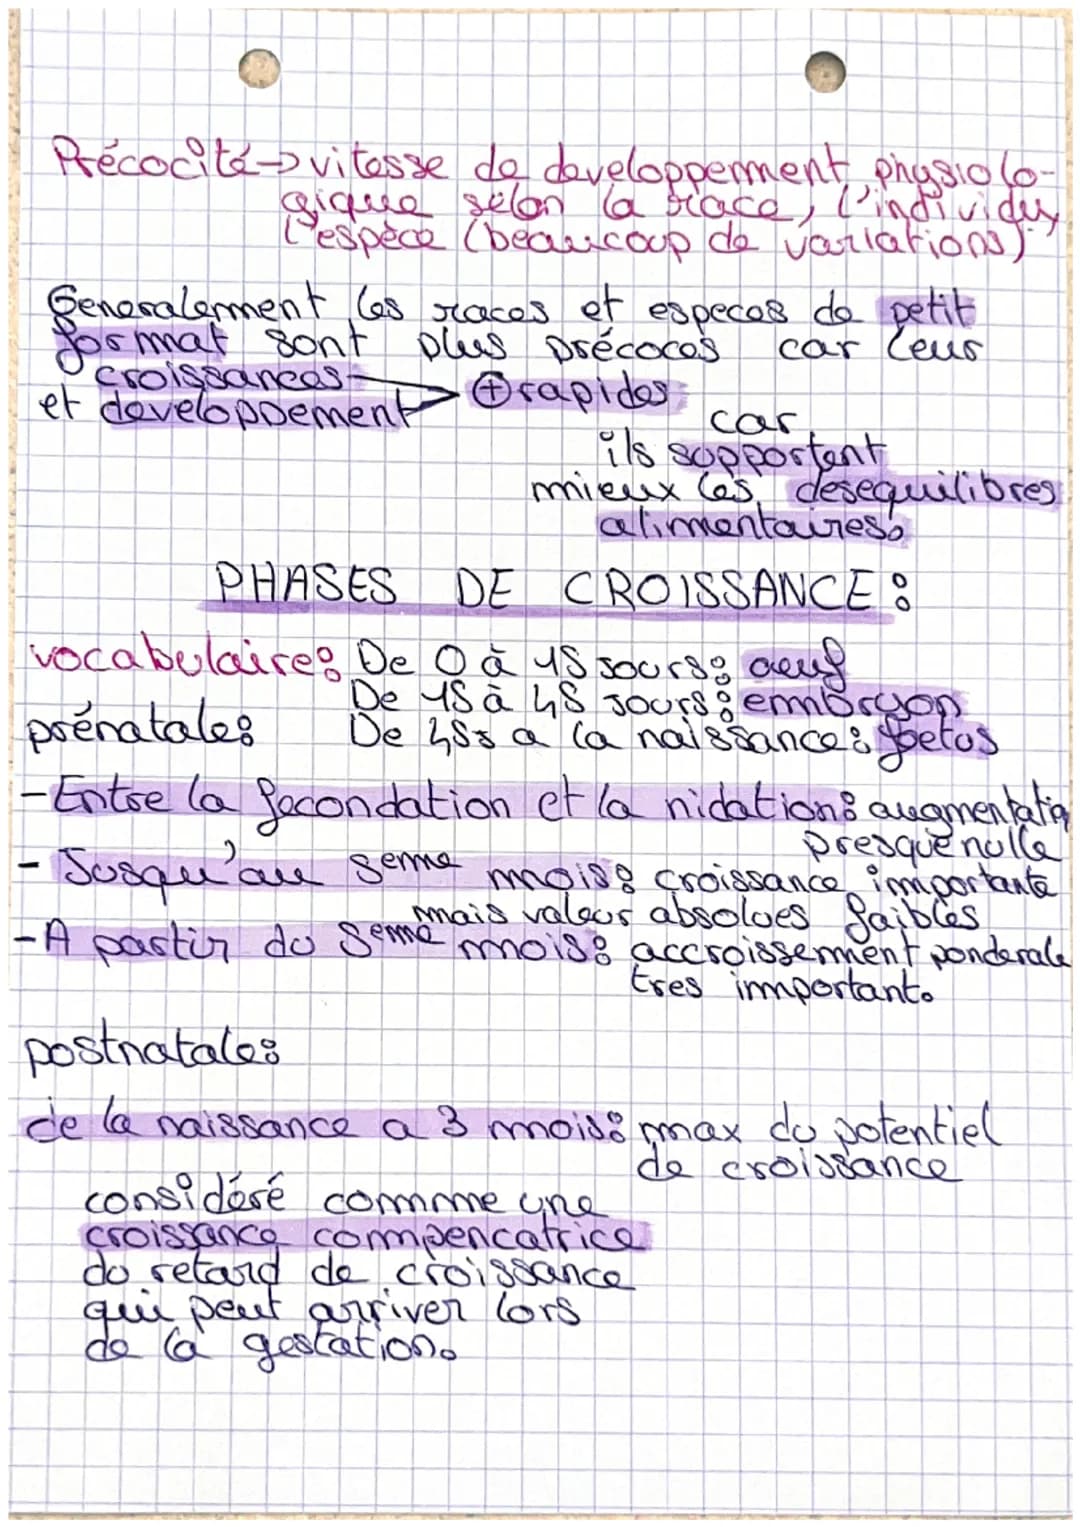 Précocité → vitesse de developpement physiolo-
gique selon la race, l'individu,
l'espèce (beaucoup de variations).
Generalement les races et especes de petit
format sont plus précoces car leur
croissances
et developpement ⊕ rapides
car
ils supportent
mieux les desequilibres
alimentaires.
PHASES DE CROISSANCE :
vocabulaire : De 0 à 15 jours : œuf
De 15 à 45 jours : embryon
prénatale : De 45j a la naissance : foetus
- Entre la fecondation et la nidation : augmentatio
presque nulle
- Jusqu'au 5eme mois : croissance importante
mais valeur absolues faibles
- A partir du 5eme mois : accroissement ponderale
tres important.
postnatale :
de la naissance a 3 mois : max du potentiel
de croissance
considéré comme une
croissance compencatrice
du retard de croissance
qui peut arriver lors
de la gestation.